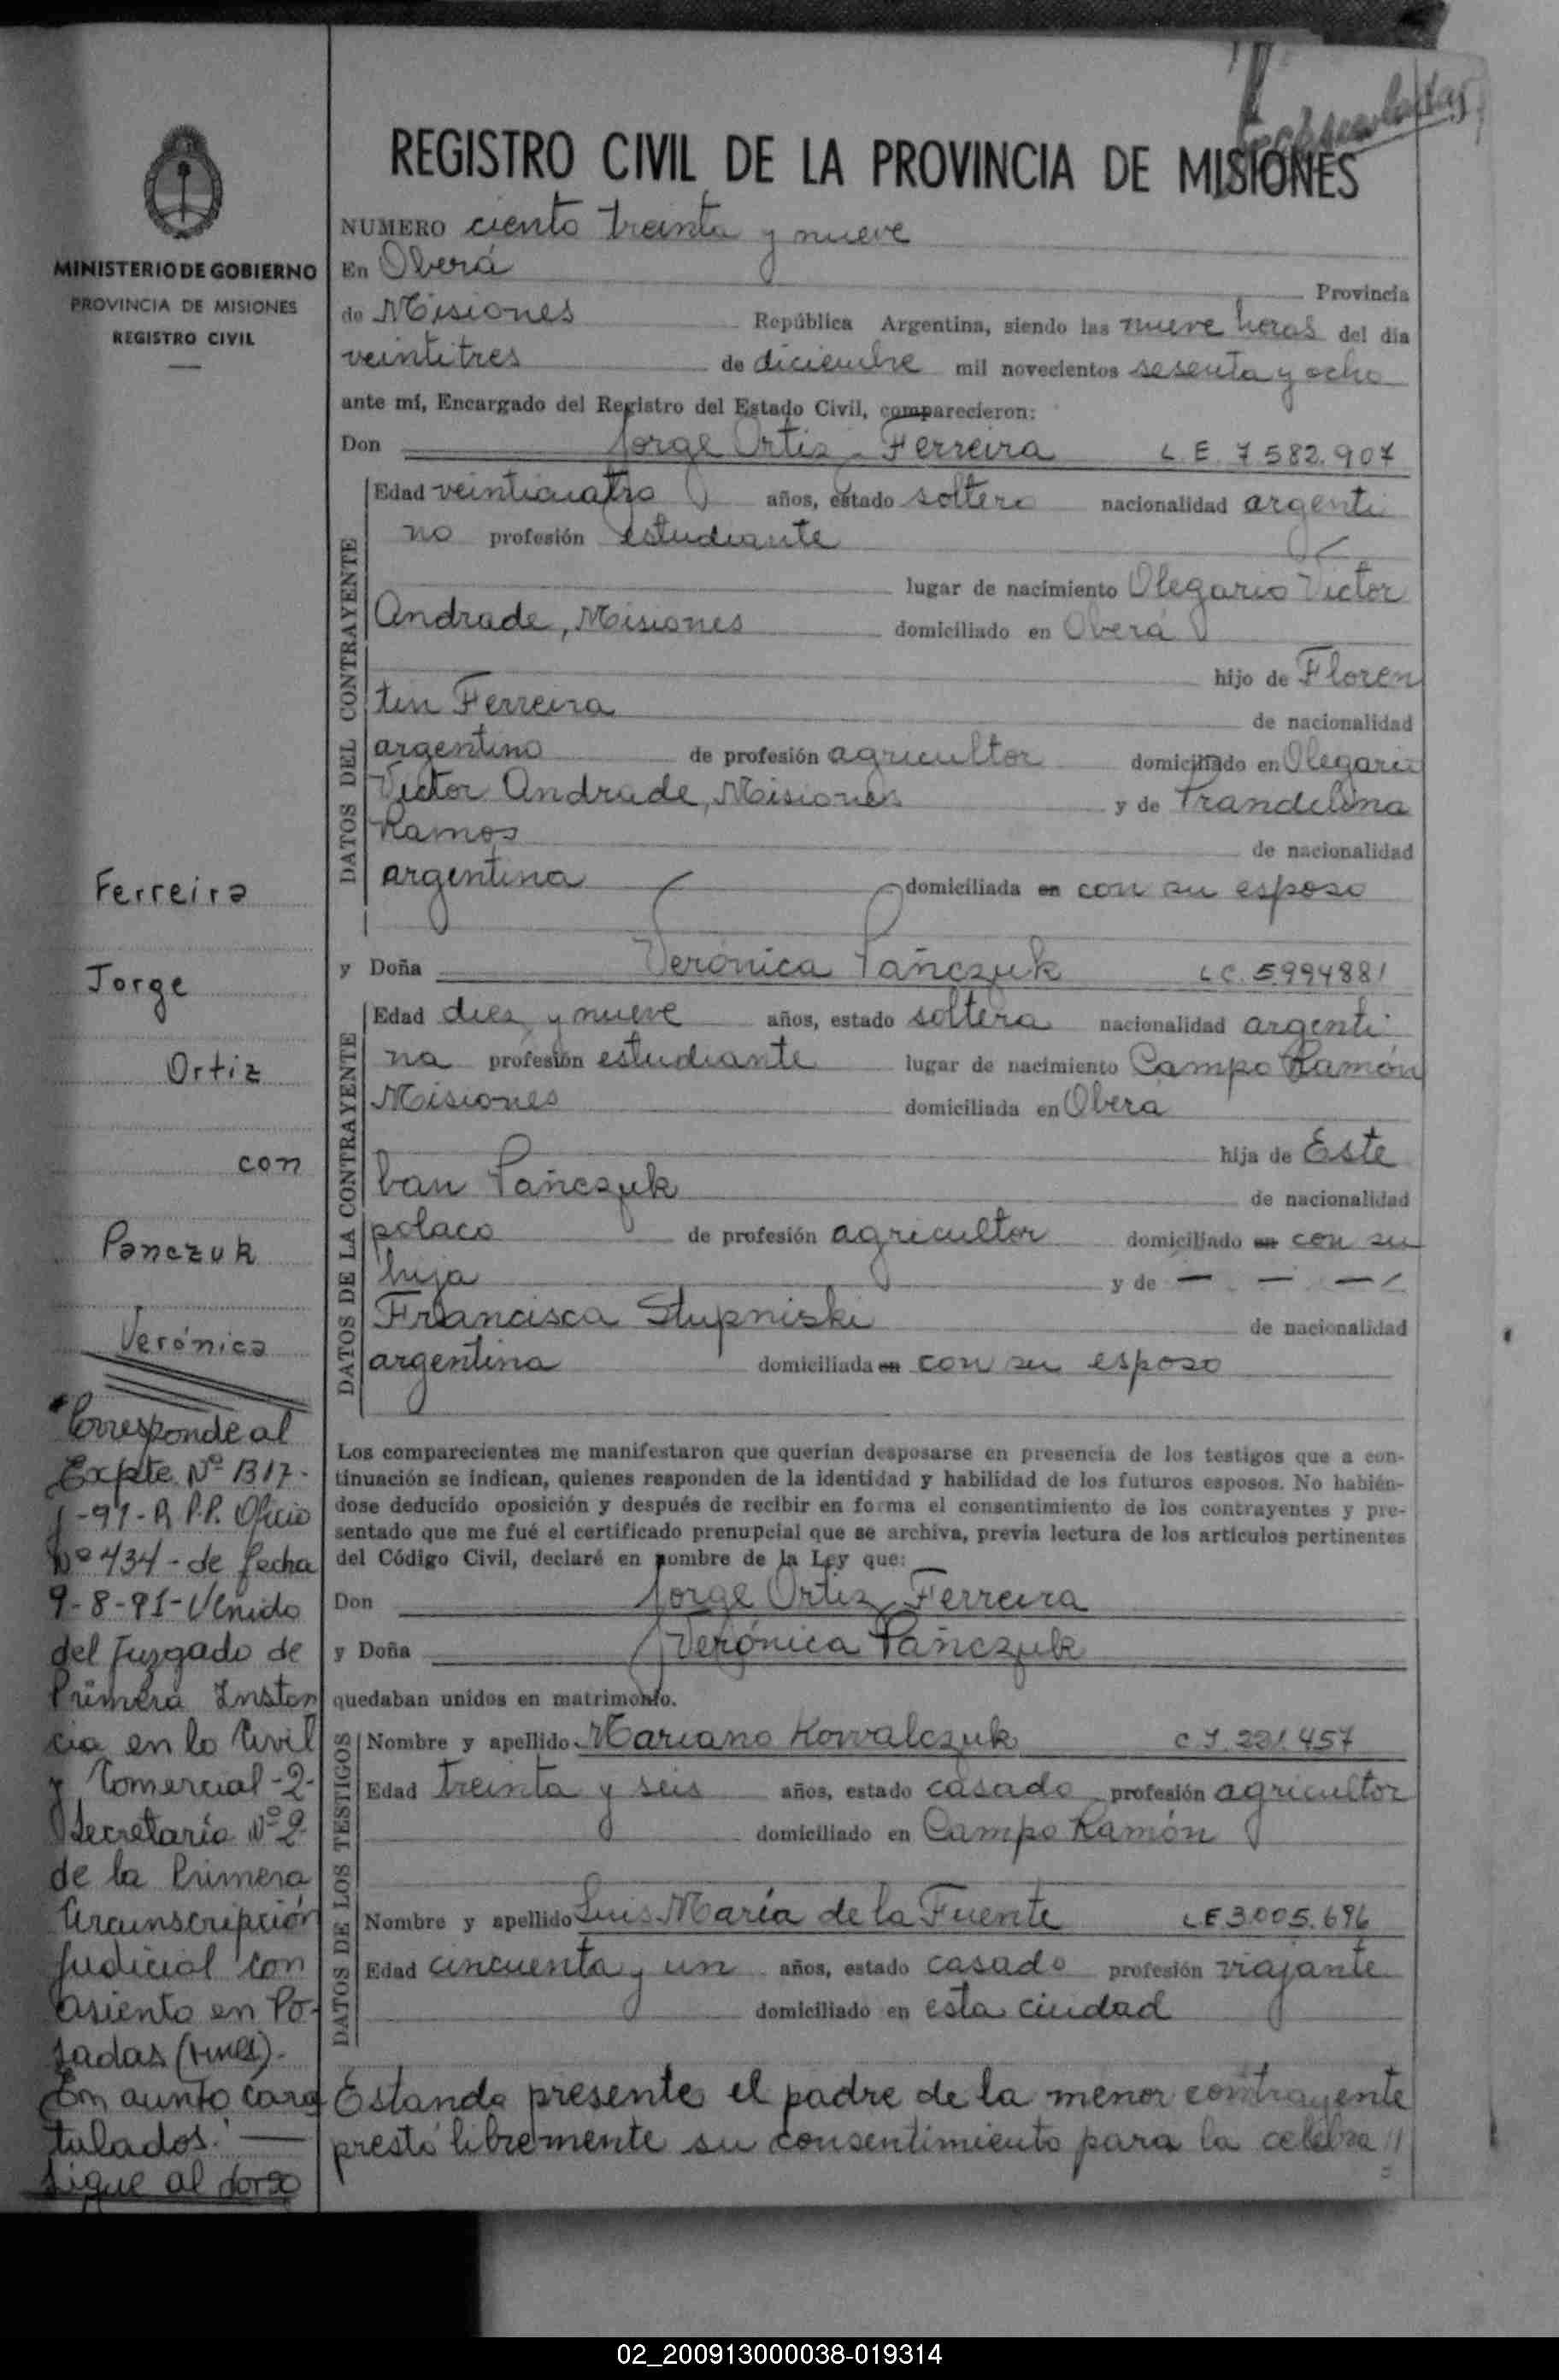 REGISTRO CIVIL DE LA PROVINCIA DE MISIONES
MINISTERIO DE GOBIERNO
PROVINCIA DE MISIONES
REGISTRO CIVIL
Ferreira
Jorge
Ortiz
con
Panczuk
Verónica
Corresponde al
Expte. Nº 1317-
-91- P.P. Oficio
Nº 434- de fecha
9-8-91- Venido
del Juzgado de
Primera Instan
cia en lo Civil
y Comercial -2-
Secretaría Nº 2
de la Primera
Circunscripción
Judicial con
asiento en Po-
sadas (Mnes).-
En aunto cara
tulados: —
Sigue al dorso
NUMERO ciento treinta y nueve
En Oberá
Provincia
de Misiones República Argentina, siendo las nueve horas del día
veintitres de diciembre mil novecientos sesenta y ocho
ante mí, Encargado del Registro del Estado Civil, comparecieron:
Don Jorge Ortiz Ferreira L.E. 7582.907
DATOS DEL CONTRAYENTE
Edad veinticuatro años, estado soltero nacionalidad argenti
no profesión estudiante
lugar de nacimiento Olegario Victor
Andrade, Misiones domiciliado en Oberá
hijo de Floren
tin Ferreira
de nacionalidad
argentino de profesión agricultor domiciliado en Olegario
Victor Andrade, Misiones y de Trandelina
Ramos
de nacionalidad
argentina domiciliada en con su esposo
y Doña Verónica Pañczuk L.C. 5994881
DATOS DE LA CONTRAYENTE
Edad diez y nueve años, estado soltera nacionalidad argenti
na profesión estudiante lugar de nacimiento Campo Ramón
Misiones domiciliada en Oberá
hija de Este
ban Pañczuk
de nacionalidad
polaco de profesión agricultor domiciliado en con su
hija y de — — —
Francisca Stupniski de nacionalidad
argentina domiciliada en con su esposo
Los comparecientes me manifestaron que querían desposarse en presencia de los testigos que a con-
tinuación se indican, quienes responden de la identidad y habilidad de los futuros esposos. No habién-
dose deducido oposición y después de recibir en forma el consentimiento de los contrayentes y pre-
sentado que me fué el certificado prenupcial que se archiva, previa lectura de los artículos pertinentes
del Código Civil, declaré en nombre de la Ley que:
Don Jorge Ortiz Ferreira
y Doña Verónica Pañczuk
quedaban unidos en matrimonio.
DATOS DE LOS TESTIGOS
Nombre y apellido Mariano Kowalczuk C.I. 221.457
Edad treinta y seis años, estado casado profesión agricultor
domiciliado en Campo Ramón
Nombre y apellido Luis María de la Fuente L.E. 3.005.696
Edad cincuenta y un años, estado casado profesión viajante
domiciliado en esta ciudad
Estando presente el padre de la menor contrayente
prestó libremente su consentimiento para la celebra //
02_200913000038-019314